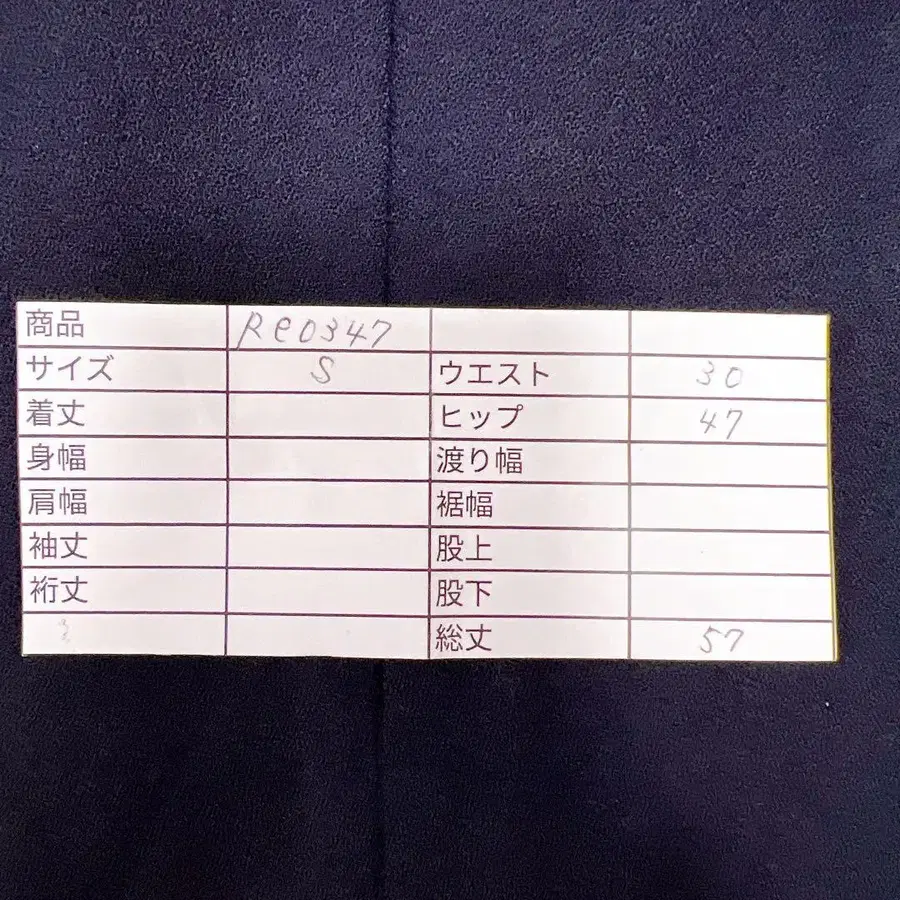 商品 Re0347
サイズ S ウエスト 30
着丈 ヒップ 47
身幅 渡り幅
肩幅 裾幅
袖丈 股上
裄丈 股下
総丈 57